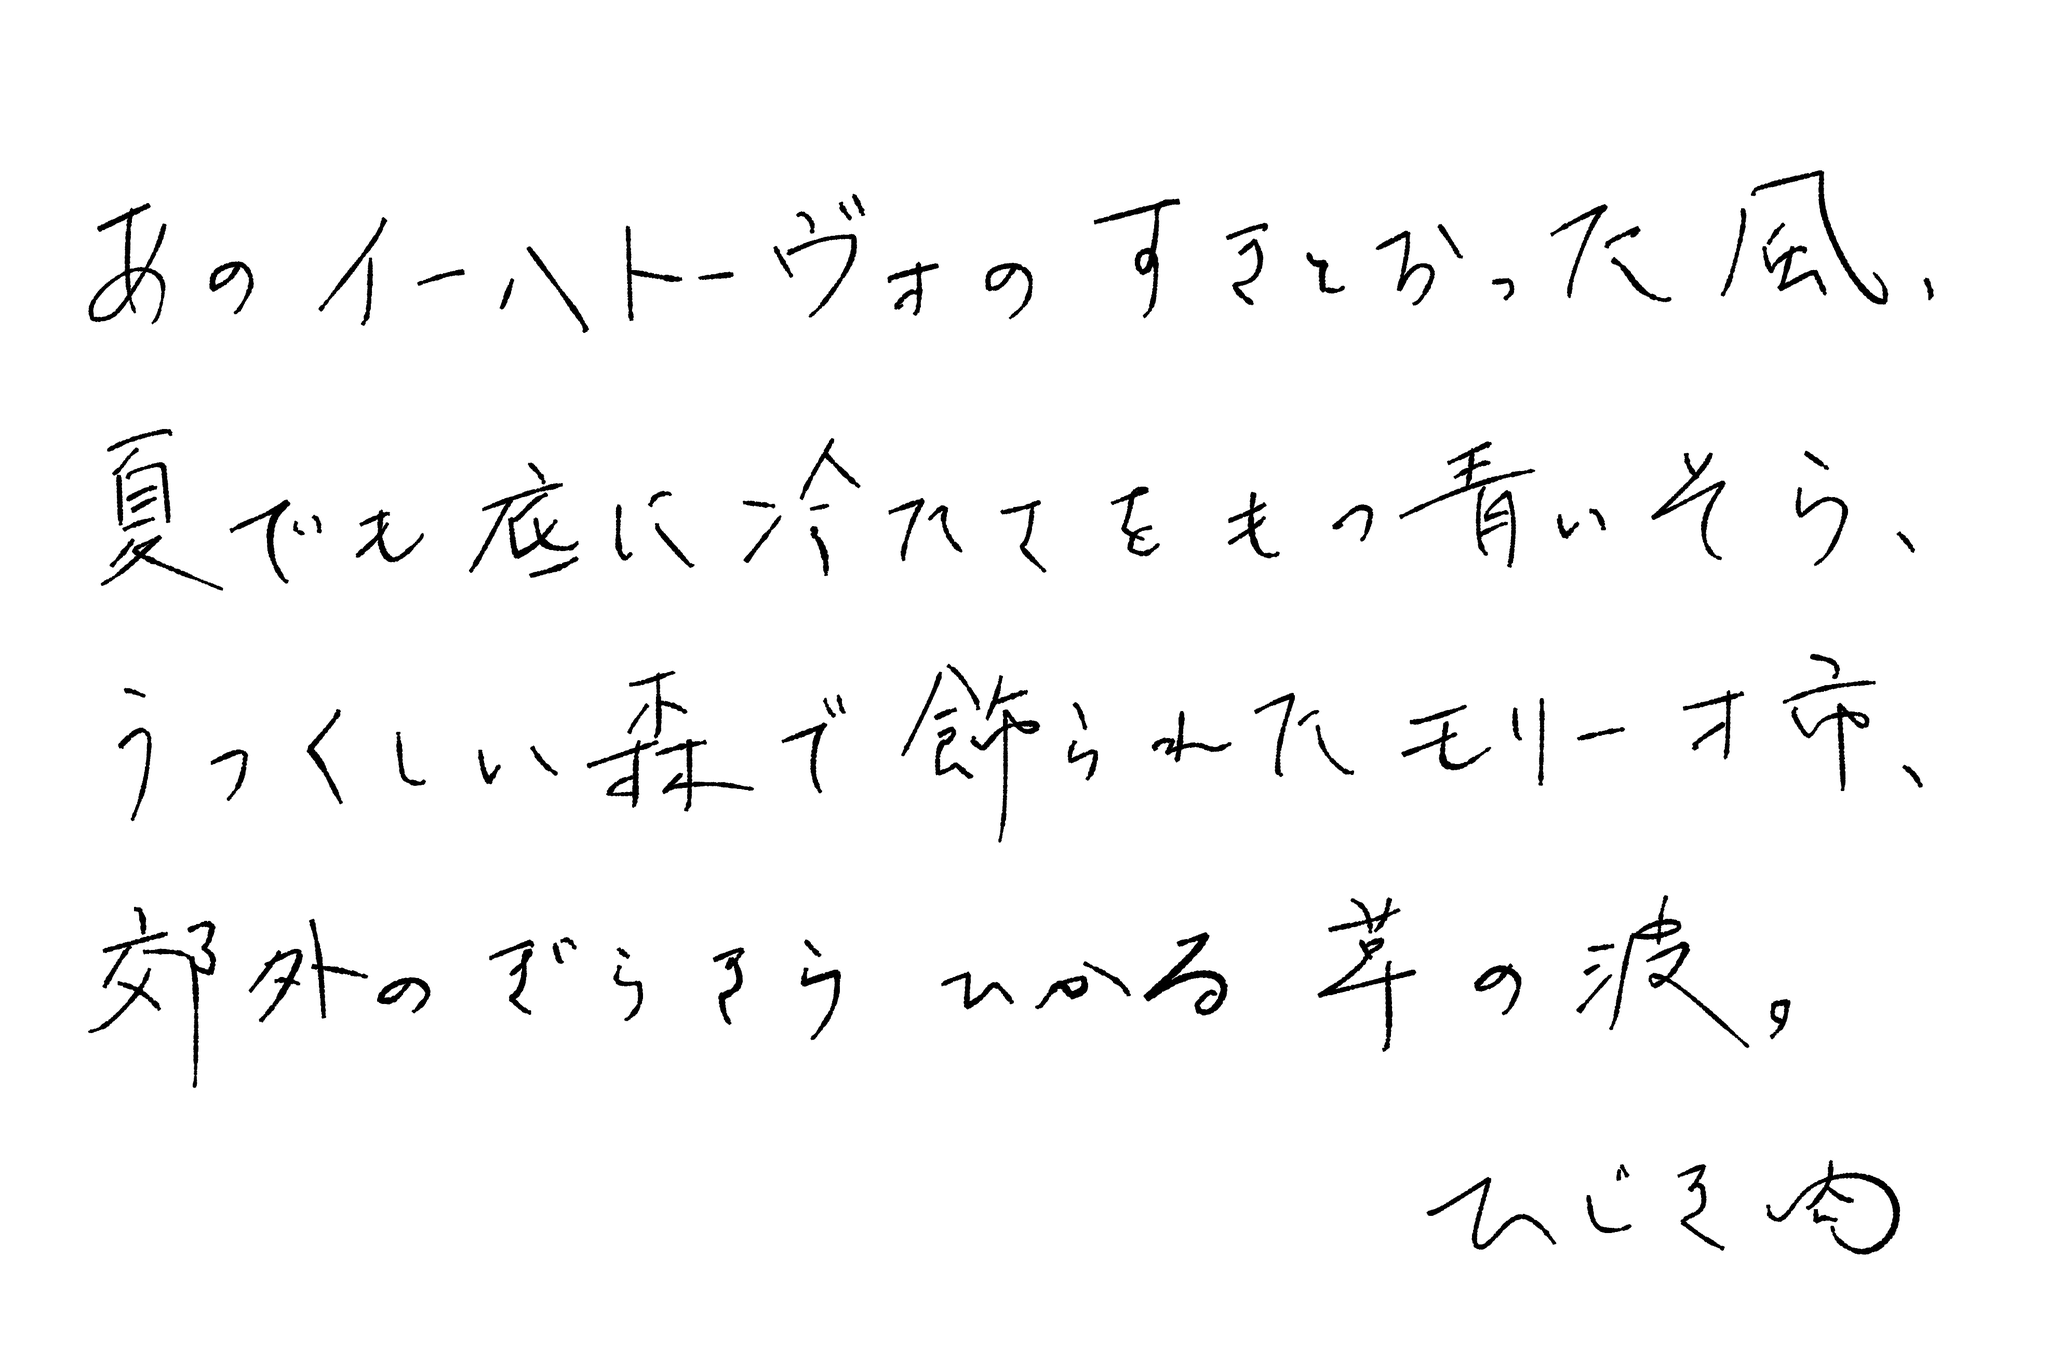 あのイーハトーヴォのすきとおった風、
夏でも底に冷たさをもつ青いそら、
うつくしい森で飾られたモリーオ市、
郊外のぎらぎらひかる草の波。
ひじき肉